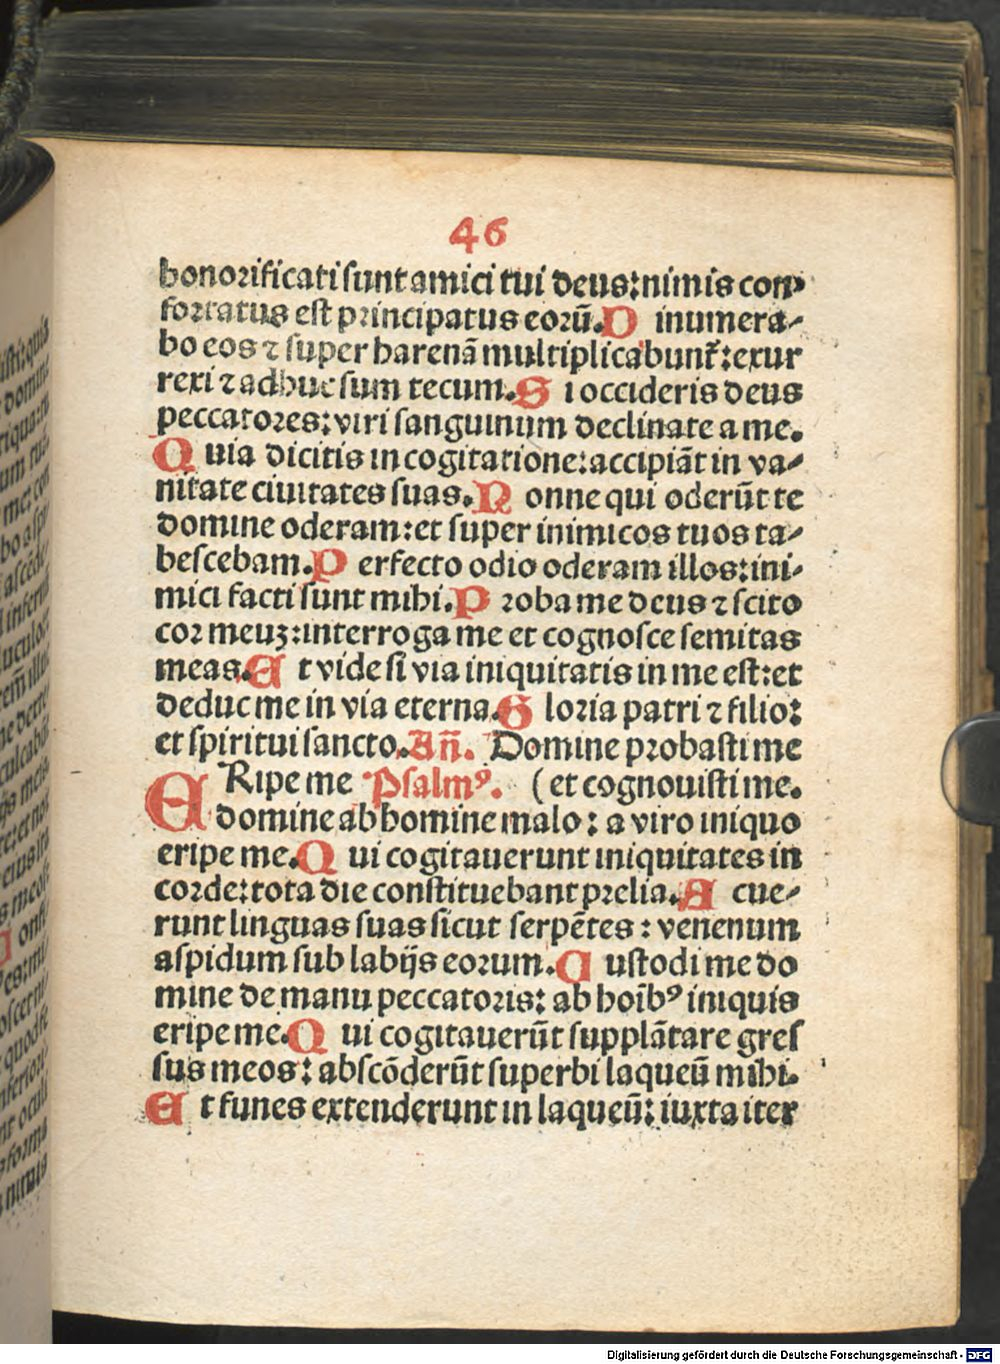 46
honorificati sunt amici tui deus: nimis con-
fortatus est principatus eorū. D inumera-
bo eos ⁊ super harenā multiplicabunt̃: exur
rexi ⁊ adhuc sum tecum. S i occideris deus
peccatores: viri sanguinum declinate a me.
Q uia dicitis in cogitatione: accipiāt in va-
nitate ciuitates suas. N onne qui oderūt te
domine oderam: et super inimicos tuos ta-
bescebam. P erfecto odio oderam illos: ini-
mici facti sunt mihi. P roba me deus ⁊ scito
cor meuʒ: interroga me et cognosce semitas
meas. E t vide si via iniquitatis in me est: et
deduc me in via eterna. G loria patri ⁊ filio:
et spiritui sancto. Añ. Domine probasti me
E Ripe me Psalmꝰ. ( et cognouisti me.
domine ab homine malo: a viro iniquo
eripe me. Q ui cogitauerunt iniquitates in
corde: tota die constituebant prelia. A cue-
runt linguas suas sicut serpētes: venenum
aspidum sub labijs eorum. C ustodi me do
mine de manu peccatoris: ab hoībꝰ iniquis
eripe me. Q ui cogitauerūt supplātare gres
sus meos: abscōderūt superbi laqueū mihi.
E t funes extenderunt in laqueū: iuxta iter
Digitalisierung gefördert durch die Deutsche Forschungsgemeinschaft - DFG